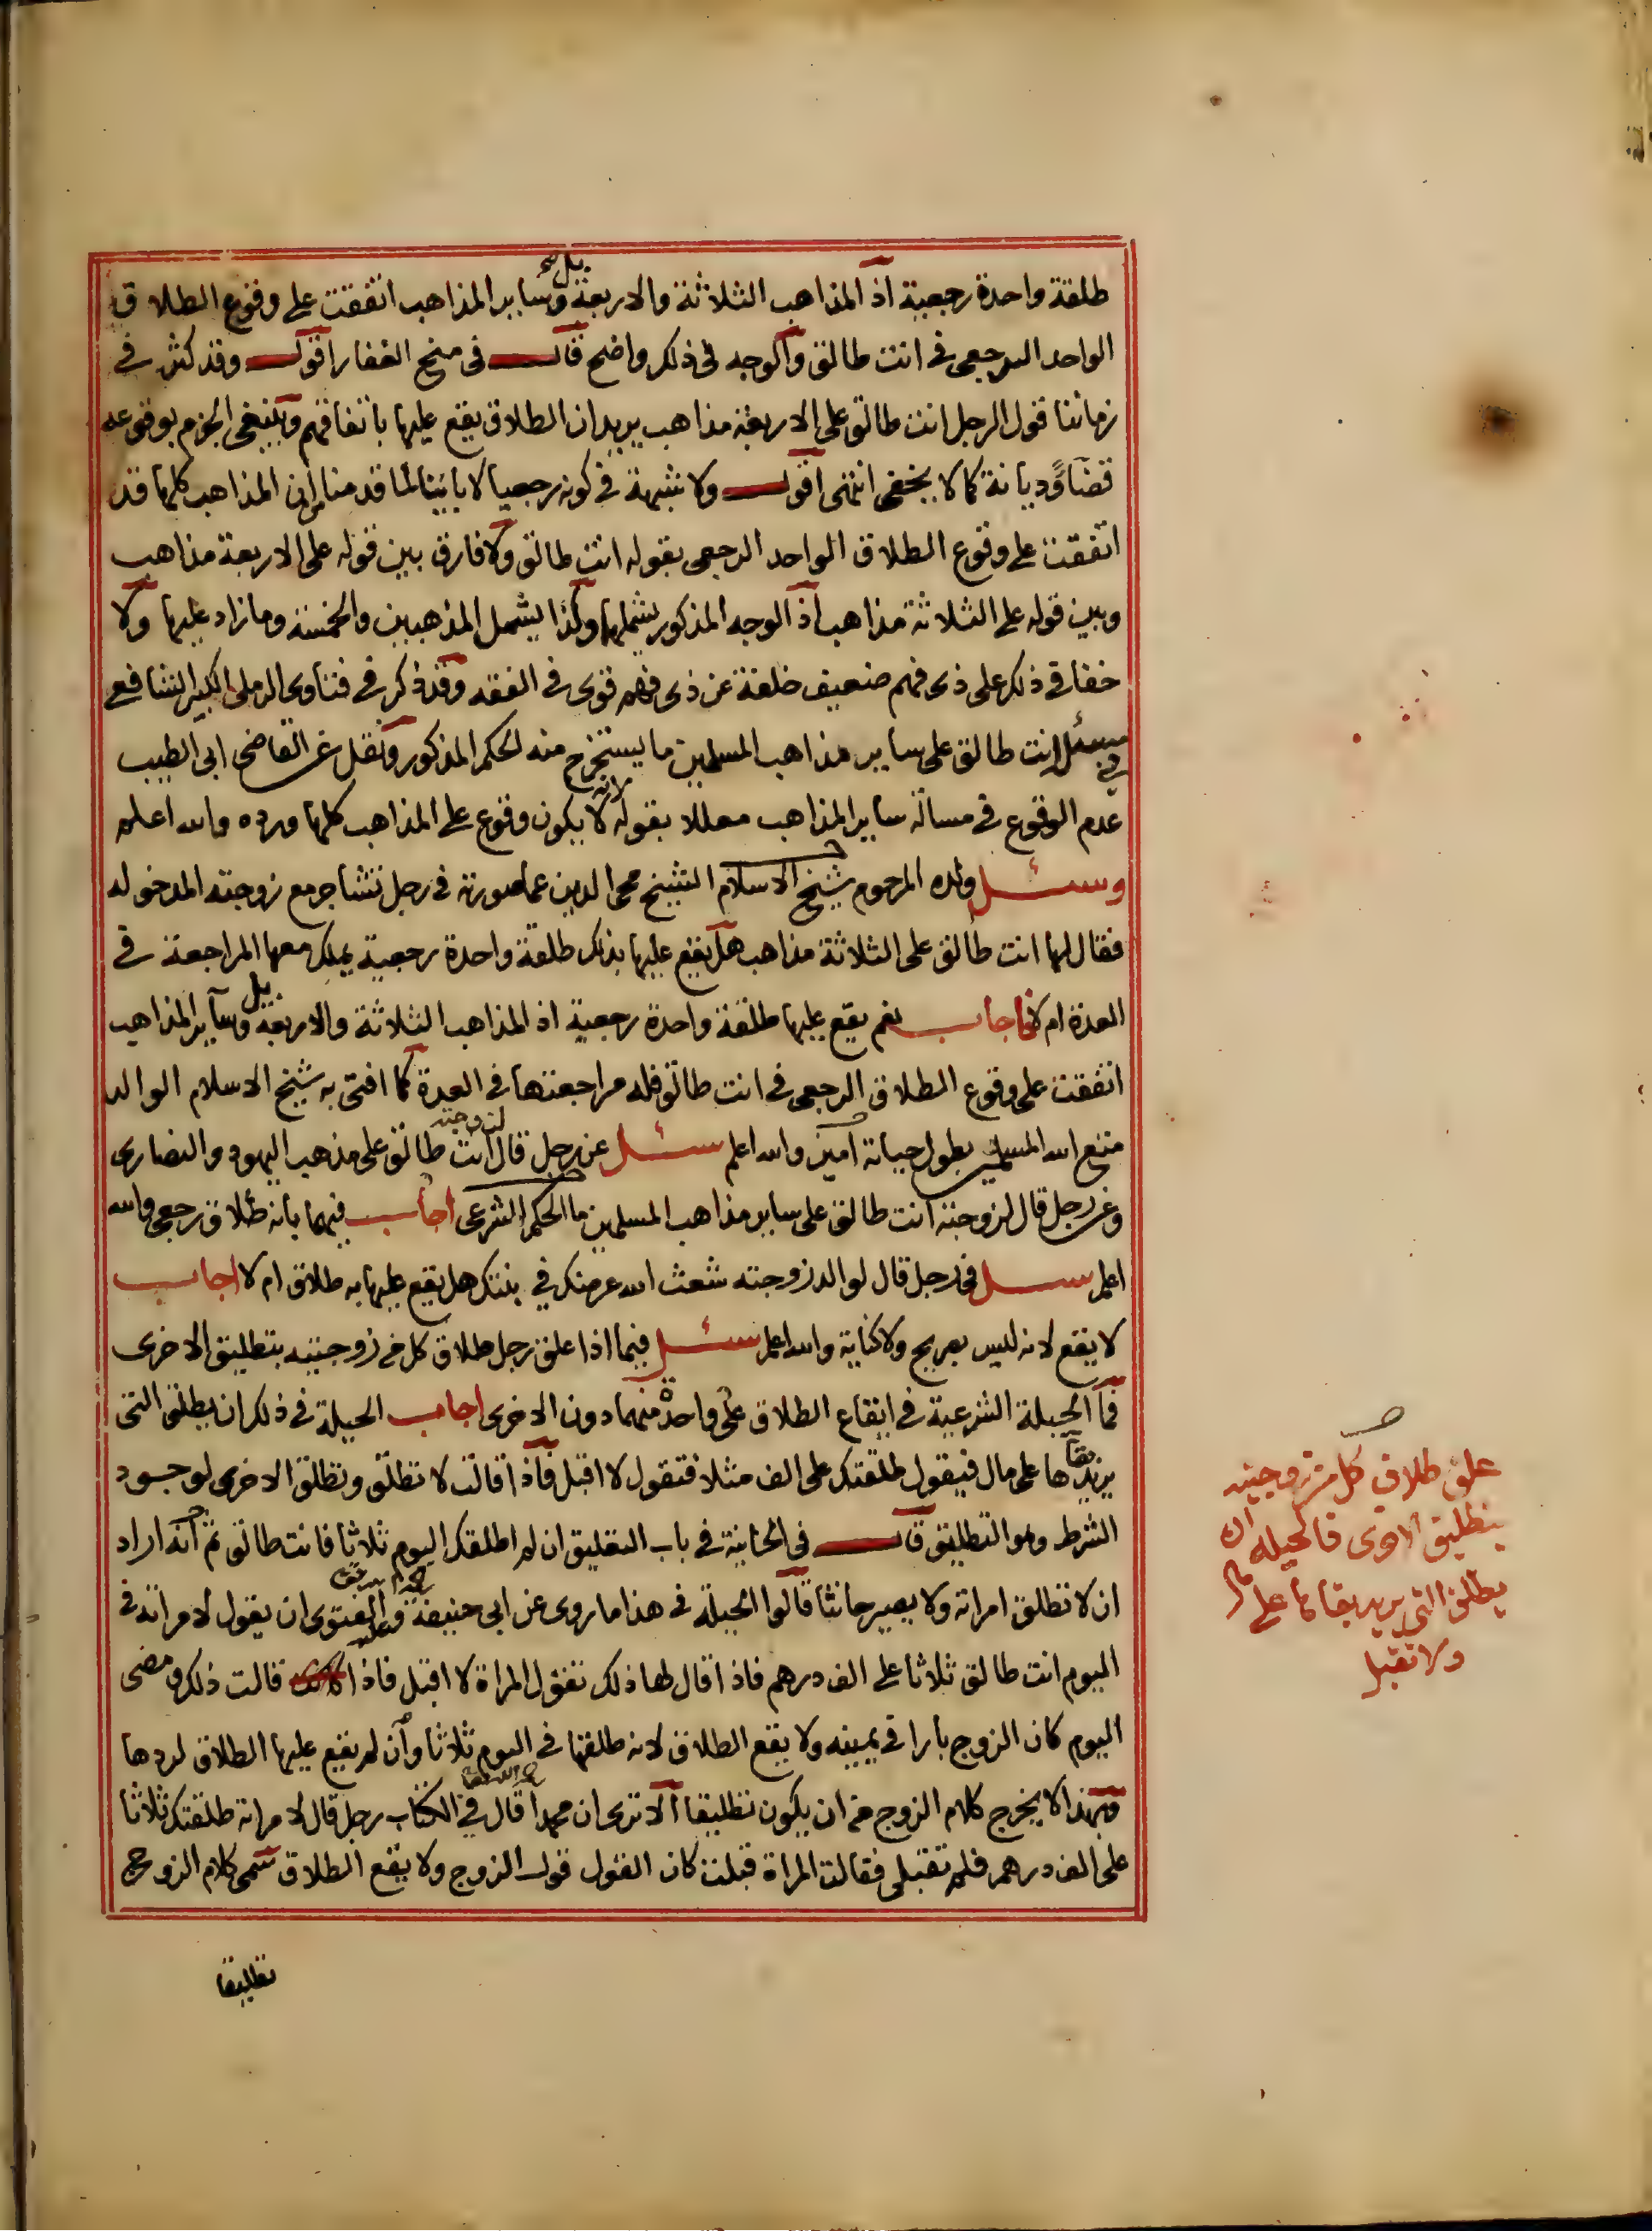 طلقة واحدة رجعية اذ المذاهب الثلاثة والاربعة بل وساير المذاهب اتفقت على وقوع الطلاق
الواحد الرجعى فى انت طالق والوجه فى ذلك واضح قال فى منح الغفار اقول وقد كثر فى
زماننا قول الرجل انت طالق على الاربعة مذاهب يريد ان الطلاق يقع عليها باتفاقهم وينبغى الجزم بوقوعه
قضآ وديانة كما لا يخفى انتهى اقول ولا شبهة فى كونه رجعيا لا باينا لما قدمنا من ان المذاهب كلها قد
اتفقت على وقوع الطلاق الواحد الرجعى بقوله انت طالق ولا فارق بين قوله على الاربعة مذاهب
وبين قوله على الثلاثة مذاهب اذ الوجه المذكور يشملها وكذا يشمل المذهبين والخمسة وما زاد عليها ولا
خفا فى ذلك على ذى فهم ضعيف خلقة عن ذى فهم قوى فى الفقه وقد ذكر فى فتاوى الرملى الكبير الشافعى
فى مسئلة انت طالق على ساير مذاهب المسلمين ما يستخرج منه الحكم المذكور ونقل عن القاضى ابى الطيب
عدم الوقوع فى مسالة ساير المذاهب معللا بقوله لانه لا يكون وقوع على المذاهب كلها ورده والله اعلم
وسئل ولده المرحوم شيخ الاسلام الشيخ محى الدين عما صورته فى رجل تشاجر مع زوجته المدخوله
فقال لها انت طالق على الثلاثة مذاهب هل يقع عليها بذلك طلقة واحدة رجعية يملك معها المراجعة فى
العدة ام لا فاجاب نعم يقع عليها طلقة واحدة رجعية اذ المذاهب الثلاثة والاربعة بل وساير المذاهب
اتفقت على وقوع الطلاق الرجعى فى انت طالق فله مراجعتها فى العدة كما افتى به شيخ الاسلام الوالد
متع الله المسلمين بطول حياته امين والله اعلم سئل عن رجل قال لزوجته انت طالق على مذهب اليهود والنصارى
وعن رجل قال لزوجته انت طالق على ساير مذاهب المسلمين ما الحكم الشرعى اجاب فيهما بانه طلاق رجعى والله
اعلم سئل فى رجل قال لوالد زوجته شعث الله عرضك فى بنتك هل يقع عليها به طلاق ام لا اجاب
لا يقع لانه ليس بصريح ولا كناية والله اعلم سئل فيما اذا علق رجل طلاق كل من زوجتيه بتطليق الاخرى
فما الحيلة الشرعية فى ايقاع الطلاق على واحدة منهما دون الاخرى اجاب الحيلة فى ذلك ان يطلق التى
يريد بقاها على مال فيقول طلقتك على الف مثلا فتقول لا اقبل فاذا قالت لا تطلق وتطلق الاخرى لوجود
الشرط وهو التطليق قال فى الخانية فى باب التعليق ان لم اطلقك اليوم ثلاثا فانت طالق ثم انه اراد
ان لا تطلق امراته ولا يصير حانثا قالوا الحيلة فى هذا ما روى عن ابى حنيفة وعليه الفتوى ان يقول لامراته فى
اليوم انت طالق ثلاثا على الف درهم فاذا قال لها ذلك تقول المراة لا اقبل فاذا قالت ذلك ومضى
اليوم كان الزوج بارا فى يمينه ولا يقع الطلاق لانه طلقها فى اليوم ثلاثا وان لم يقع عليها الطلاق لردها
وبهذا لا يخرج كلام الزوج من ان يكون تطليقا الا ترى ان محمدا قال فى الكتاب رجل قال لامراته طلقتك ثلاثا
على الف درهم فلم تقبلى فقالت المراة قبلت كان القول قول الزوج ولا يقع الطلاق سمى كلام الزوج
تطليقا
علق طلاق كل من زوجتيه
بتطليق الاخرى فالحيلة ان
يطلق التى يريد بقاها على مال
ولا تقبل